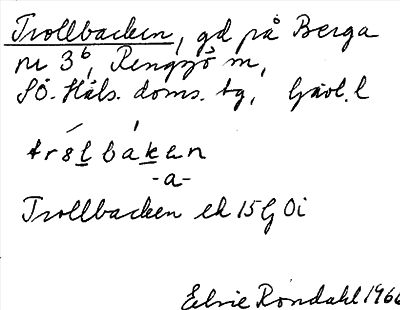 Trollbacken, gd på Berga
nr 3⁶, Rengsjö sn,
SÖ. Häls. doms. tg, Gävl. l
trɷlbakan
-a-
Trollbacken ek 15G Oi
Elsie Röndahl 1966